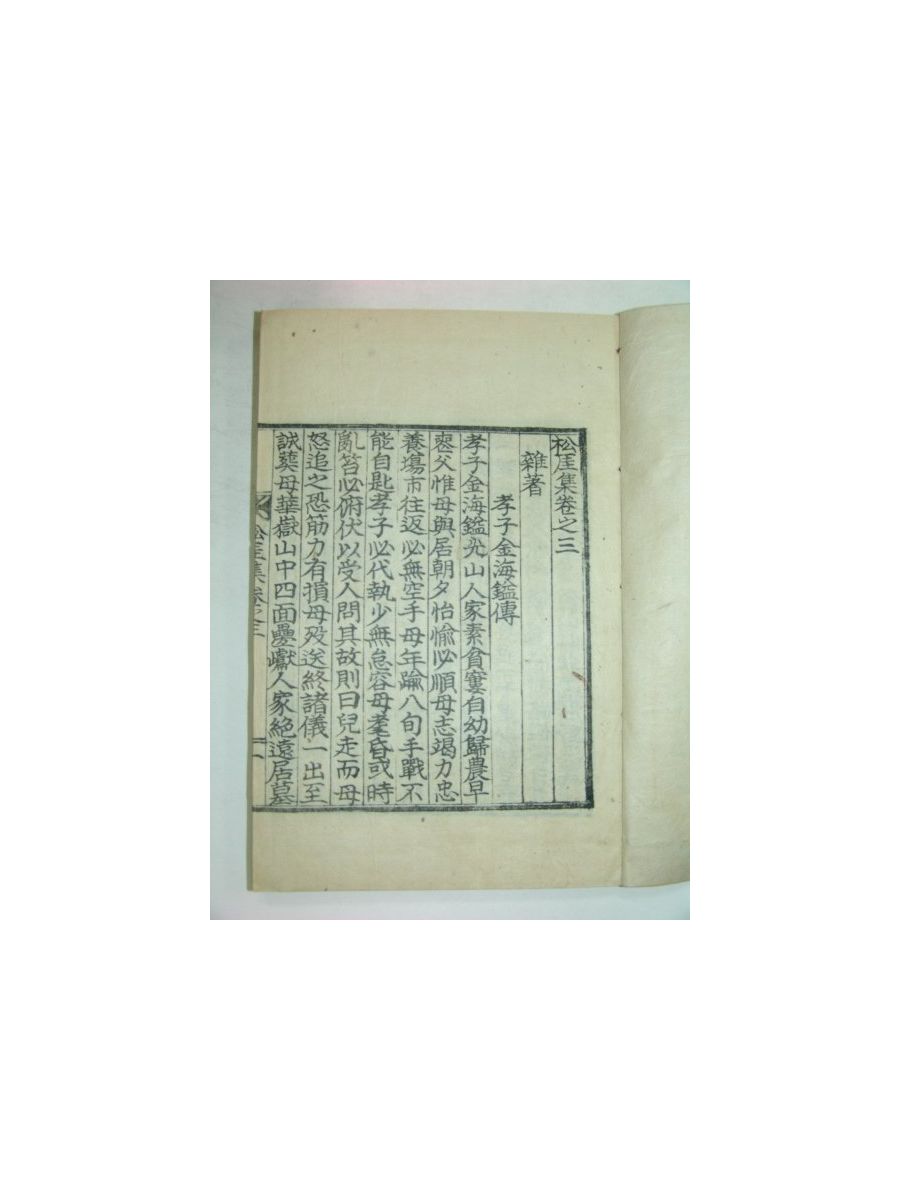 松厓集卷之三
雜著
孝子金海鎰傳
孝子金海鎰光山人家素貧窶自幼歸農早
喪父惟母與居朝夕怡愉必順母志竭力忠
養塲市往返必無空手母年踰八旬手戰不
能自匙孝子必代執少無怠容母耄昏或時
亂笞必俯伏以受人問其故則曰兒走而母
怒追之恐筋力有損母歿送終諸儀一出至
誠葬母華嶽山中四面疊巘人家絶遠居墓
松厓集卷之三
一